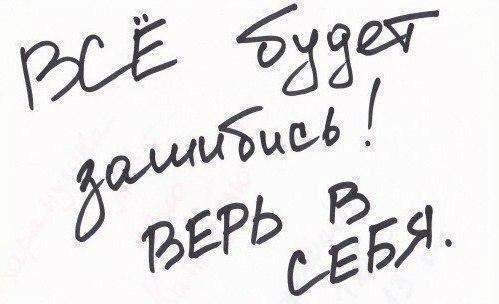 ВСЁ будет
зашибись!
ВЕРЬ В
СЕБЯ.